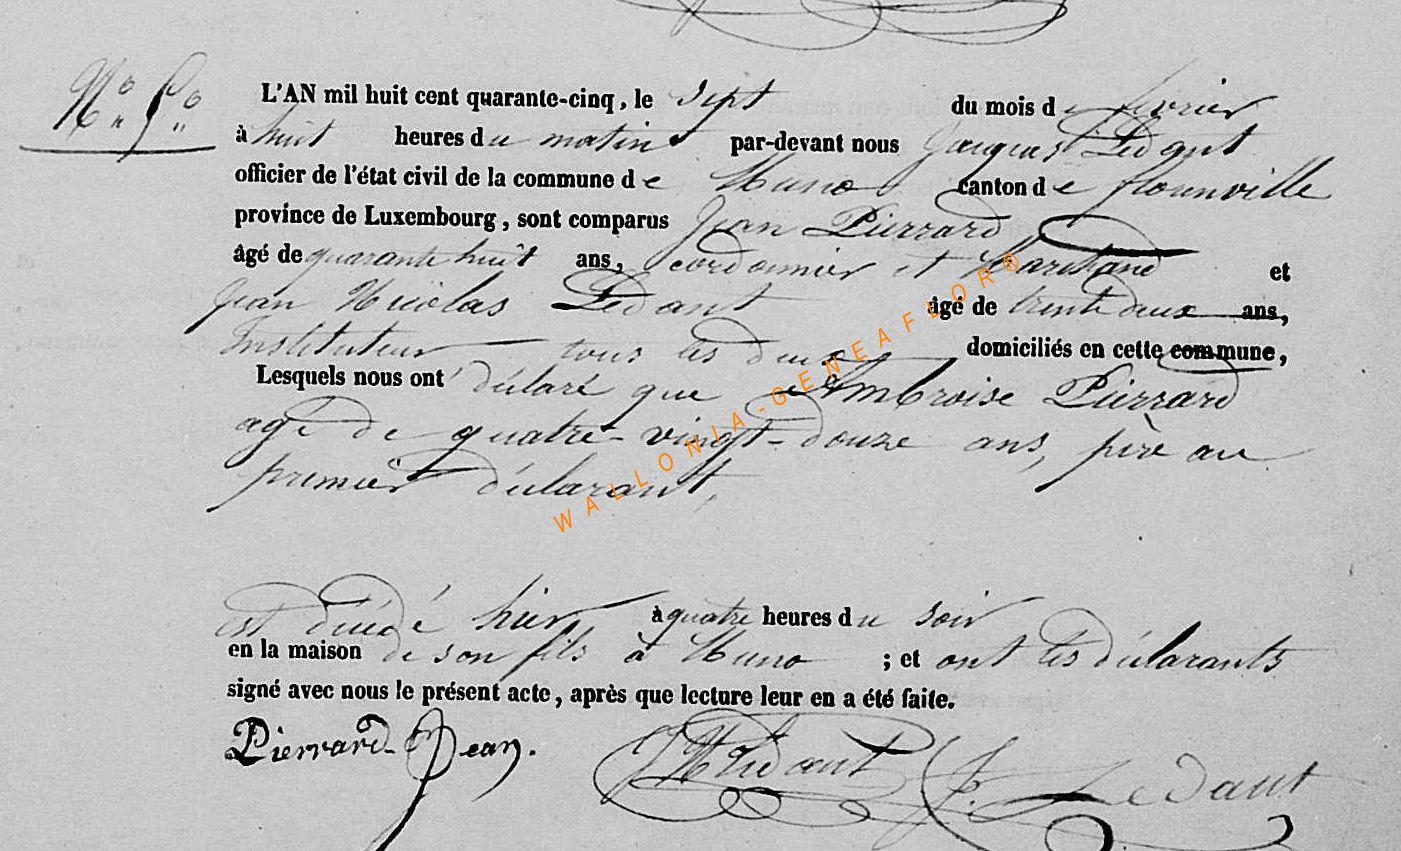 L'AN mil huit cent quarante-cinq, le Sept du mois de fevrier
à huit heures du matin par-devant nous Jacques Ledant
officier de l'état civil de la commune de Muno canton de florenville
province de Luxembourg, sont comparus Jean Pierrard
âgé de quarante huit ans, cordonnier et Marchand et
Jean Nicolas Ledant âgé de trente deux ans,
Instituteur tous les deux domiciliés en cette commune,
Lesquels nous ont déclaré que Ambroise Pierrard
agé de quatre-vingt-douze ans, père au
premier déclarant,
est décédé hier à quatre heures du soir
en la maison de son fils à Muno ; et ont les déclarants
signé avec nous le présent acte, après que lecture leur en a été faite.
Pierrard Jean. JN Ledant J. Ledant
WALLONIA-GENEAFLOR®